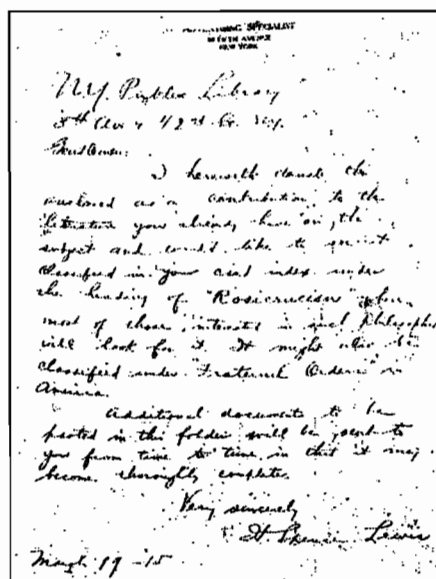 SPECIALIST
FIFTH AVENUE
NEW YORK
N.Y. Public Library
5th Ave & 42nd St. N.Y.
Gentlemen:
I herewith the
enclosed as a contribution to the
literature you already have on the
subject and would like to see it
classified in your card index under
the heading of "Rosicrucian" where
most of those interested in such philosophy
will look for it. It might also be
classified under "Fraternal Orders" in
America.
Additional documents to be
pasted in this folder will be sent to
you from time to time in that it may
become thoroughly complete.
Very sincerely
H Spencer Lewis
March 19-15